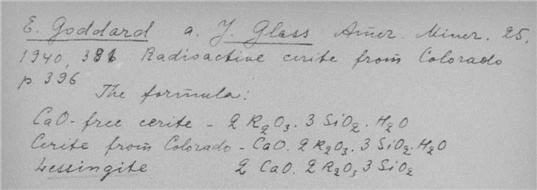 E. Goddard a. J. Glass Amer. Miner. 25,
1940, 381 Radioactive cerite from Colorado
p. 396
The formula:
CaO-free cerite - 2 R₂O₃. 3 SiO₂. H₂O
Cerite from Colorado - CaO. 2 R₂O₃. 3 SiO₂. H₂O
Lessingite 2 CaO. 2 R₂O₃ 3 SiO₂